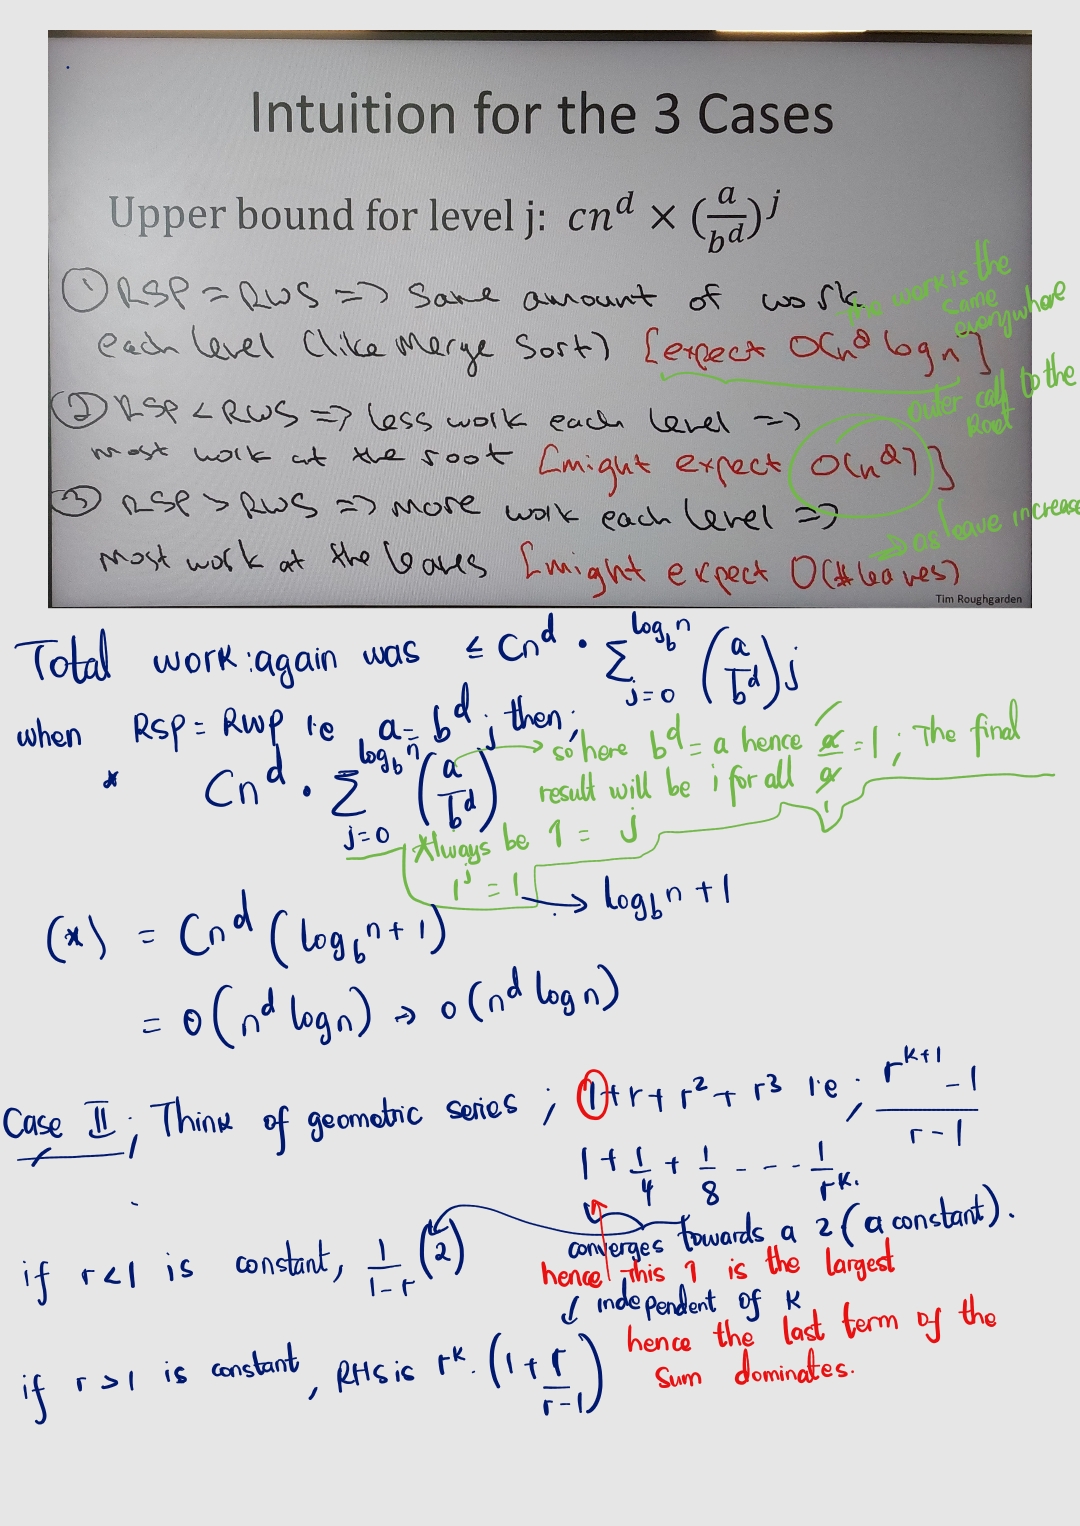 Intuition for the 3 Cases
Upper bound for level j: cn^d × (a/b^d)^j
① RSP = RWS => Same amount of work
each level (like Merge Sort) [expect O(n^d log n]
the work is the
same
everywhere
② RSP < RWS => less work each level =>
most work at the root [might expect O(n^d)]
outer call to the
Root
③ RSP > RWS => more work each level =>
most work at the leaves [might expect O(# leaves)
=> as leave increase
Tim Roughgarden
Total work: again was ≤ Cn^d · Σ_{j=0}^{log_b n} (a/b^d) j
when RSP = RWP i.e a = b^d; then;
* Cn^d · Σ_{j=0}^{log_b n} (a/b^d)^j
→ so here b^d = a hence a/a = 1; The final
result will be i for all
Always be 1 = j
1^j = 1 → log_b n + 1
(*) = Cn^d (log_b n + 1)
= O(n^d log n) → O(n^d log n)
Case II; Think of geometric series; 1 + r + r² + r³ i.e; r^{k+1} - 1 / r - 1
1 + 1/4 + 1/8 - - - - 1/r^k.
converges towards a 2 (a constant).
if r<1 is constant, 1/1-r (2)
hence this 1 is the largest
independent of k
if r>1 is constant, RHS is r^k. (1 + r/r-1)
hence the last term of the
sum dominates.